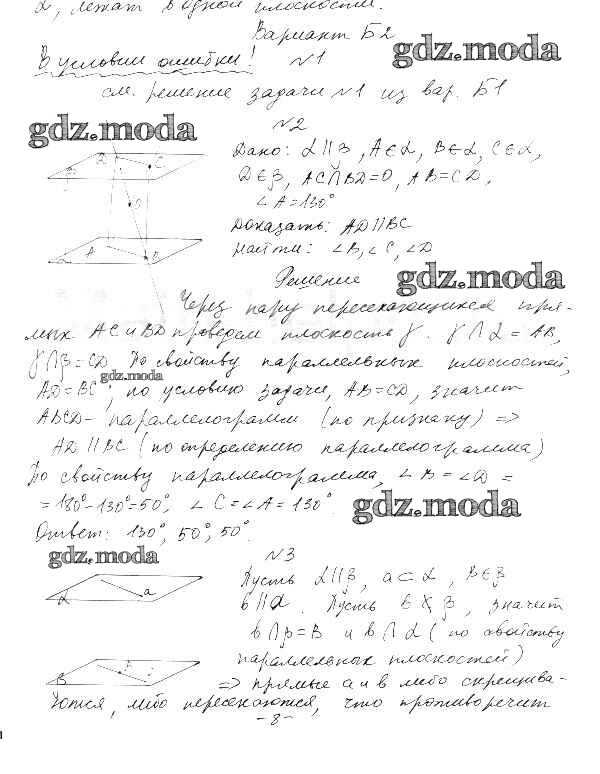 α, лежат в одной плоскости.
Вариант Б2
В условии ошибки! №1
gdz.moda
см. решение задачи №1 из вар. Б1
gdz.moda
№2
Дано: α∥β, A∈α, B∈α, C∈α,
D∈β, AC∩BD=O, AB=CD,
∠A=130°
Доказать: AD∥BC
Найти: ∠B, ∠C, ∠D
Решение
gdz.moda
Через пару пересекающихся пря-
мых AC и BD проведем плоскость γ. γ∩α=AB,
γ∩β=CD По свойству параллельных плоскостей,
gdz.moda
AD=BC; по условию задачи, AB=CD, значит
ABCD- параллелограмм (по признаку) =>
AD∥BC (по определению параллелограмма)
По свойству параллелограмма, ∠B=∠D=
=180°-130°=50°, ∠C=∠A=130°.
gdz.moda
Ответ: 130°, 50°, 50°.
gdz.moda
№3
Пусть α∥β, a⊂α, B∈β
b∥α. Пусть b⊄β, значит
b∩β=B и b∩α (по свойству
параллельных плоскостей)
=> прямые a и b либо скрещива-
ются, либо пересекаются, что противоречит
-8-